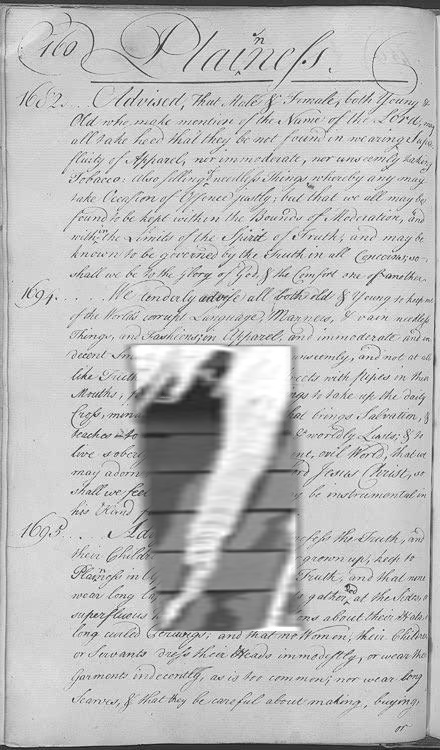 160 Plainess.
1682. . . Advised, that Male & Female, both Young &
Old who make mention of the Name of the Lord, may
all take heed that they be not found in wearing Supe
fluity of Apparel, nor immoderate, nor unseemly taking
Tobacco: also selling needless Things whereby any may
take Occasion of Offence justly; but that we all may be
found to be kept within the Bounds of Moderation, and
within the Limits of the Spirit of Truth; and may be
known to be governed by the Truth in all Concerns, so
shall we be to the Glory of God, & the Comfort one of another.
1694. . . . . . We tenderly advise all both old & Young to keep out
of the Worlds corrupt Language, Manners, & vain needless
Things, and Fashions, in Apparel; and immoderate and in
decent Sm unseemly, and not at all
like Truth ects with pipes in their
Mouths, gs to take up the daily
Cross, min at brings Salvation, &
teaches & worldly Lusts; & to
live sober nt, evil World, that we
may adorn rd Jesus Christ, so
shall we feel be instrumental in
his Hand
1695. . . Ad ofess the Truth, and
their Childr grown up, keep to
Plainess in Truth, and that none
wear long to gather, at the Sides, or
superfluous ons about their Hats, or
long curled Perwigs; and that no Women, their Children
or Servants dress their Heads immodestly, or wear their
Garments indecently, as is too common; nor wear long
Scarves, & that they be careful about making, buying,
or